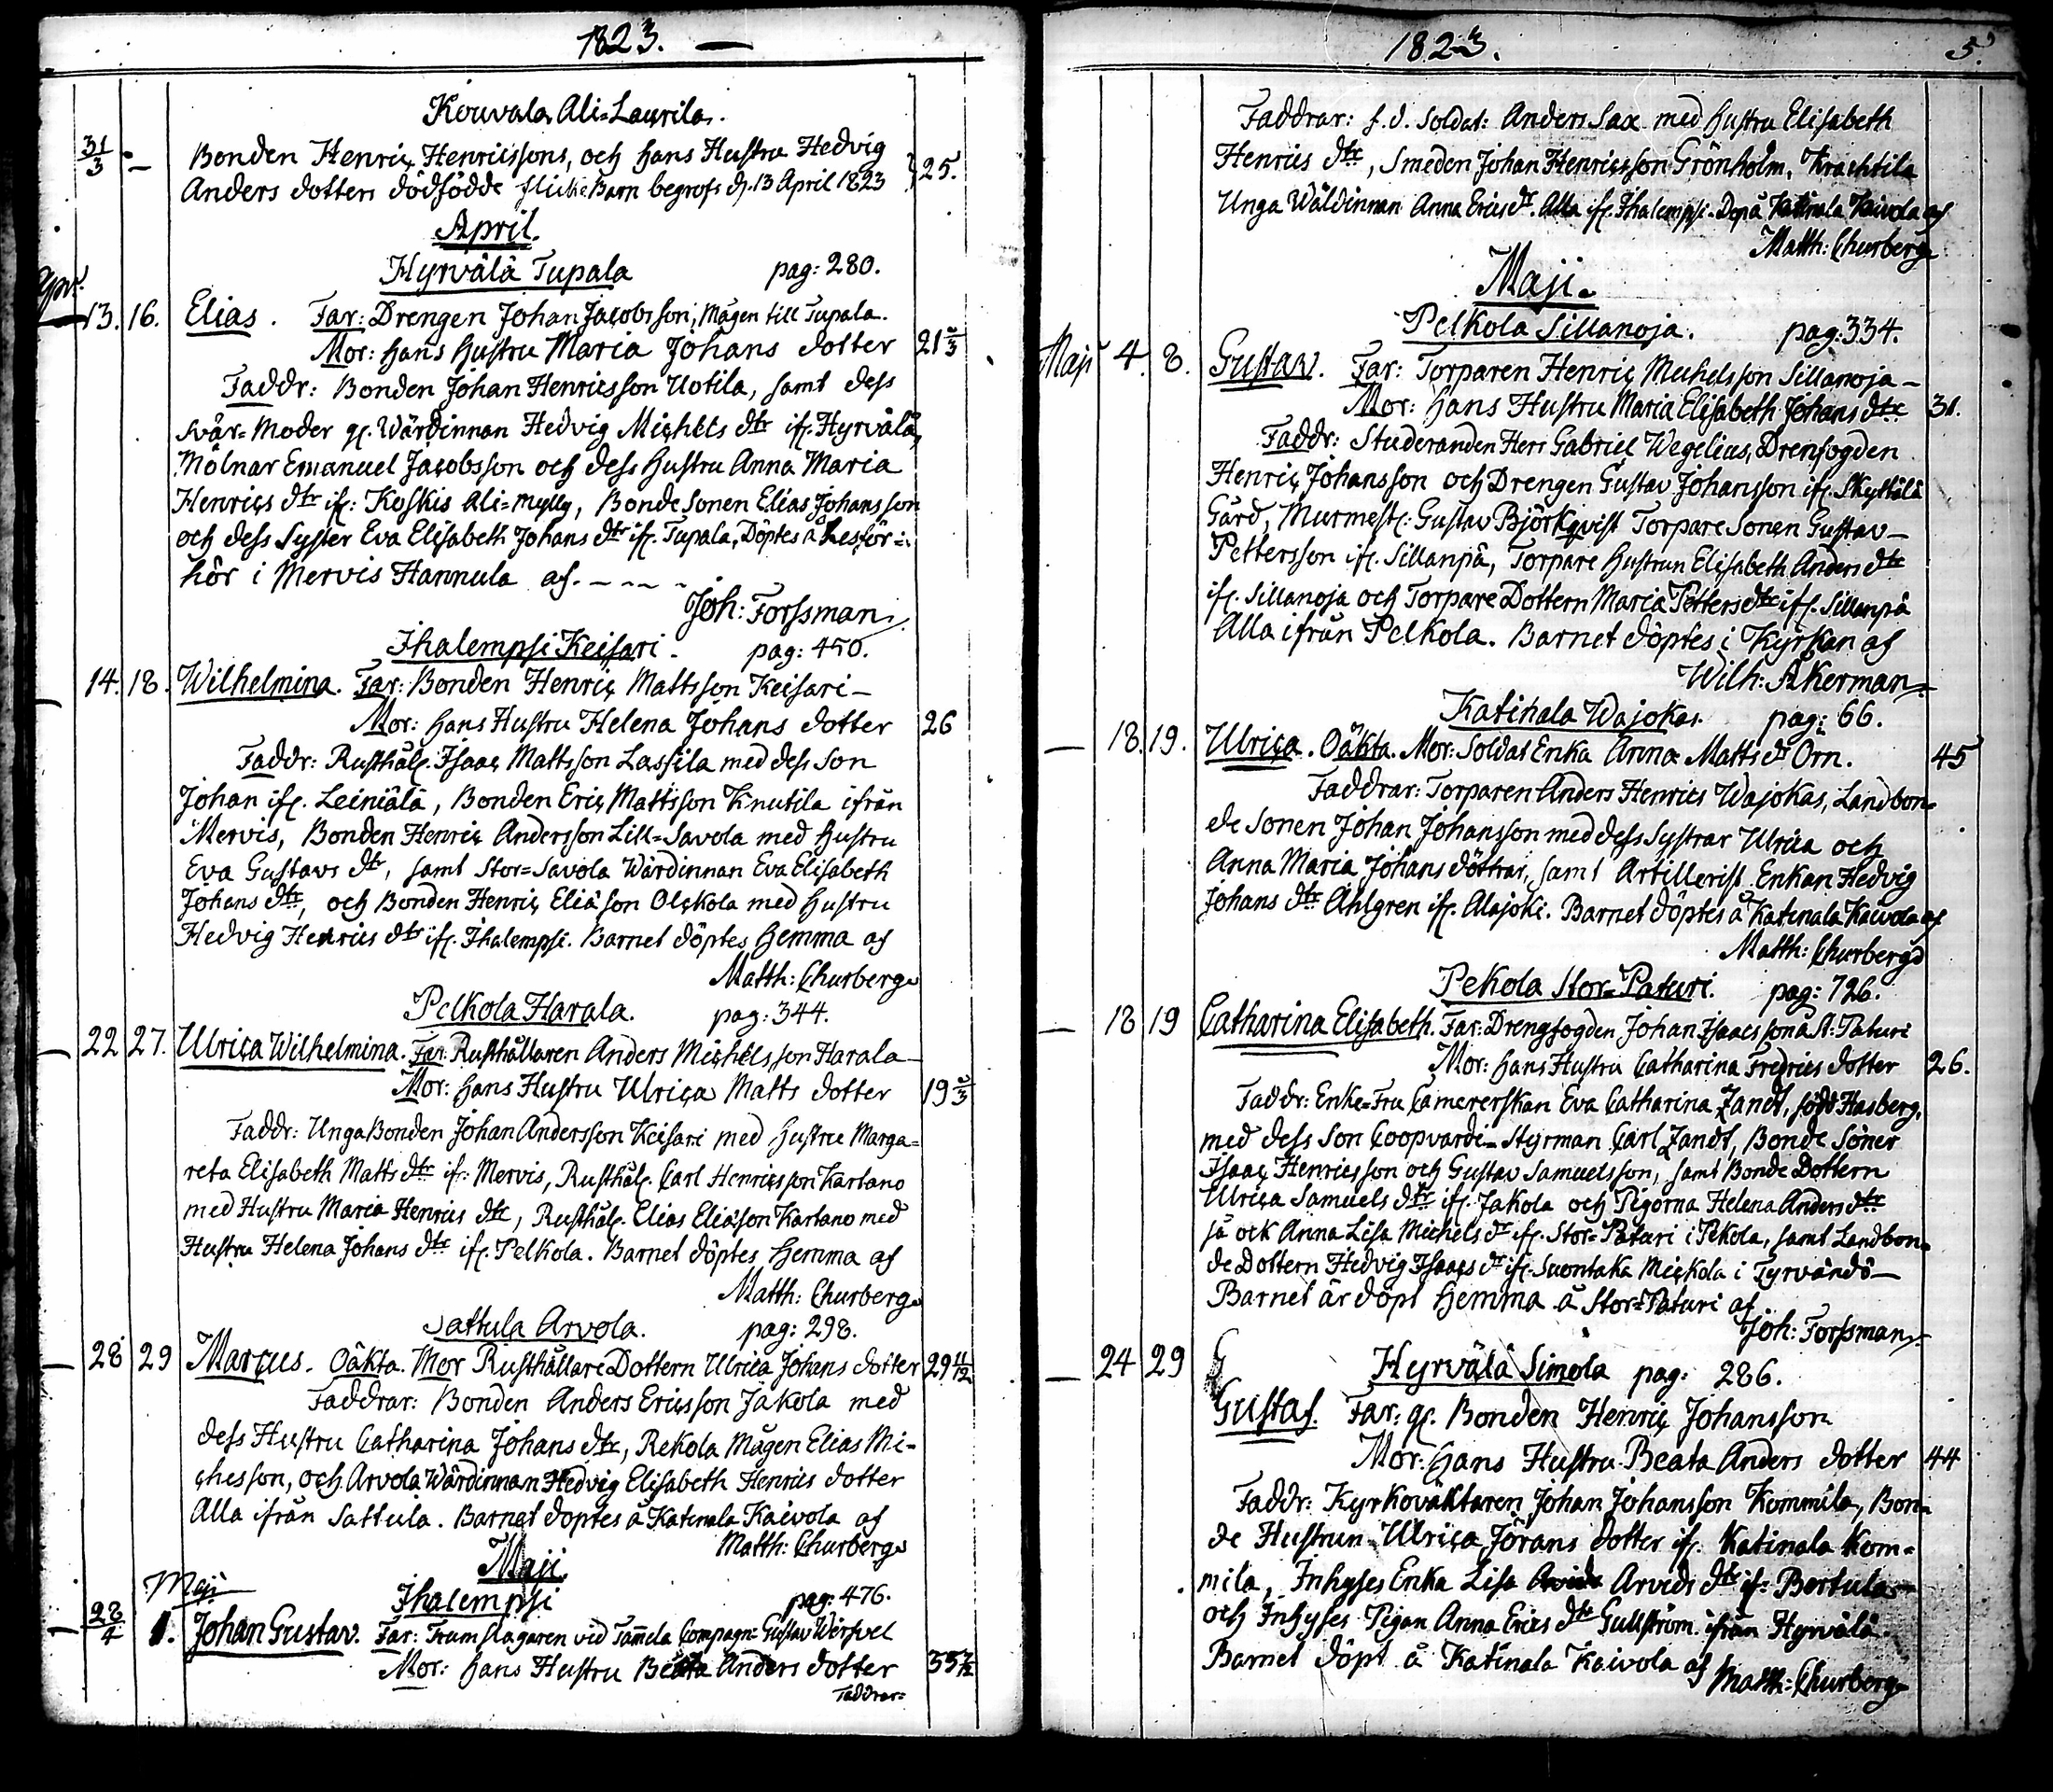 1823. —
Kouvala Ali=Laurila.
31/3 — Bonden Henric Henricssons, och hans Hustru Hedvig
Anders dotters dödfödde flicke Barn begrofs d. 13 April 1823 25.
April.
Hyrvälä Tupala pag: 280.
Apr.
13. 16. Elias. Far: Drengen Johan Jacobsson, Mågen till Tupala.
Mor: hans Hustru Maria Johans dotter 21 2/3
Faddr: Bonden Johan Henricsson Uotila, samt dess
Svär=Moder gl. Wärdinnan Hedvig Michels dtr ifr. Hyrvälä,
Mölnar Emanuel Jacobsson och dess Hustru Anna Maria
Henrics dtr ifr: Koskis Ali=Mylly, Bonde Sonen Elias Johansson
och dess Syster Eva Elisabeth Johans dtr ifr. Tupala, Döptes å Läsför=
hör i Mervis Hannula af. - - - -
Joh: Forssman.
Ihalempsi Keisari. pag: 450.
14. 18. Wilhelmina. Far: Bonden Henric Mattsson Keisari —
Mor: hans Hustru Helena Johans dotter 26
Faddr: Rusthåll. Isaac Mattsson Lassila med dess Son
Johan ifr. Leiniälä, Bonden Eric Mattsson Knutila ifrån
Mervis, Bonden Henric Andersson Lill=Savola med Hustru
Eva Gustavs dtr, samt Stor=Savola Wärdinnan Eva Elisabeth
Johans dtr, och Bonden Henric Eliäson Olckola med Hustru
Hedvig Henrics dtr ifr. Ihalempsi. Barnet döptes hemma af
Matth: Churberg
Pelkola Harala. pag: 344.
22 27. Ulrica Wilhelmina. Far: Rusthållaren Anders Michelsson Harala —
Mor: hans Hustru Ulrica Matts dotter 19 2/3
Faddr: Unga Bonden Johan Andersson Keisari med Hustru Marga=
reta Elisabeth Matts dtr ifr: Mervis, Rusthåll. Carl Henricsson Kartano
med Hustru Maria Henrics dtr, Rusthåll. Elias Eliäson Kartano med
Hustru Helena Johans dtr ifr. Pelkola. Barnet döptes hemma af
Matth: Churberg
Sattula Arvola. pag: 298.
28 29 Marcus. Oäkta. Mor Rusthållare Dottern Ulrica Johans dotter 29 11/12
Faddrar: Bonden Anders Ericsson Jakola med
dess Hustru Catharina Johans dtr, Rekola Mågen Elias Mi=
chesson, och Arvola Wärdinnan Hedvig Elisabeth Henrics dotter
Alla ifrån Sattula. Barnet döptes å Katinala Kaivola af
Matth: Churberg
Maji.
Maji
Ihalempsi pag. 476.
28/4 1. Johan Gustav. Far: Trumslagaren vid Tamela Compagn: Gustav Wirfvel
Mor: hans Hustru Beata Anders dotter
Faddrar=
1823. 5.
Faddrar: f.d. Soldat: Anders Sax med Hustru Elisabeth
Henrics dtr, Smeden Johan Henricsson Grönholm, Krachtila
Unga Wäldinnan Anna Erics dr. Alla ifr. Ihalempsi. Döpt å Katinala Kaivola af
Matth: Churberg
Maji.
Pelkola Sillanoja. pag: 334.
Maji 4. 8. Gustav. Far: Torparen Henric Michelsson Sillanoja —
Mor: Hans Hustru Maria Elisabeth Johans dtr 31.
Faddr: Studeranden Herr Gabriel Wegelius, Drenfogden
Henric Johansson och Drengen Gustav Johansson ifr. Skyttälä
Gård, Murmest. Gustav Björkqvist Torpare Sonen Gustav —
Pettersson ifr. Sillanpä, Torpare Hustrun Elisabeth Anders dtr
ifr. Sillanoja och Torpare Dottern Maria Petters dtr ifr. Sillanpä
Alla ifrån Pelkola. Barnet döptes i Kyrkan af
Wilh: Åkerman.
Katinala Wajokas. pag: 66.
18. 19. Ulrica. Oäkta. Mor: Soldat Enka Anna Matts dr Örn. 45
Faddrar: Torparen Anders Henrics Wajokas, Landbon=
de Sonen Johan Johansson med dess Systrar Ulrica och
Anna Maria Johans döttrar, samt Artillerist Enkan Hedvig
Johans dtr Ahlgren ifr. Alajoki. Barnet döptes å Katinala Kaivola af
Matth: Churberg
Pekola Stor=Paturi. pag: 726.
18 19 Catharina Elisabeth. Far: Drengfogden Johan Isaacsson å St: Paturi
Mor: hans Hustru Catharina Fredrics dotter 26.
Faddr: Enke=Fru Camererskan Eva Catharina Zandt, född Hasberg,
med dess Son Coopvardi=Styrman Carl Zandt, Bonde Söner
Isaac Henricsson och Gustav Samuelsson, samt Bonde Dottern
Ulrica Samuels dtr ifr. Jakola och Pigorna Helena Anders dtr
så ock Anna Lisa Michels dr ifr. Stor=Paturi i Pekola, samt Landbon=
de Dottern Hedvig Isaacs dr ifr. Suontaka Mickola i Tyrvändö —
Barnet är döpt hemma å Stor=Paturi af
Joh: Forssman.
24 29 Hyrvälä Simola pag: 286.
Gustaf. Far: gl. Bonden Henric Johansson
Mor: hans Hustru Beata Anders dotter 44
Faddr: Kyrkoväktaren Johan Johansson Kommila, Bon=
de Hustrun Ulrica Jörans dotter ifr. Katinala Kom=
mila, Inhyses Enka Lisa Arvids dtr ifr: Bertula
och Inhyses Pigan Anna Erics dtr Gullström ifrån Hyrvälä.
Barnet döpt å Katinala Kaivola af Matth: Churberg